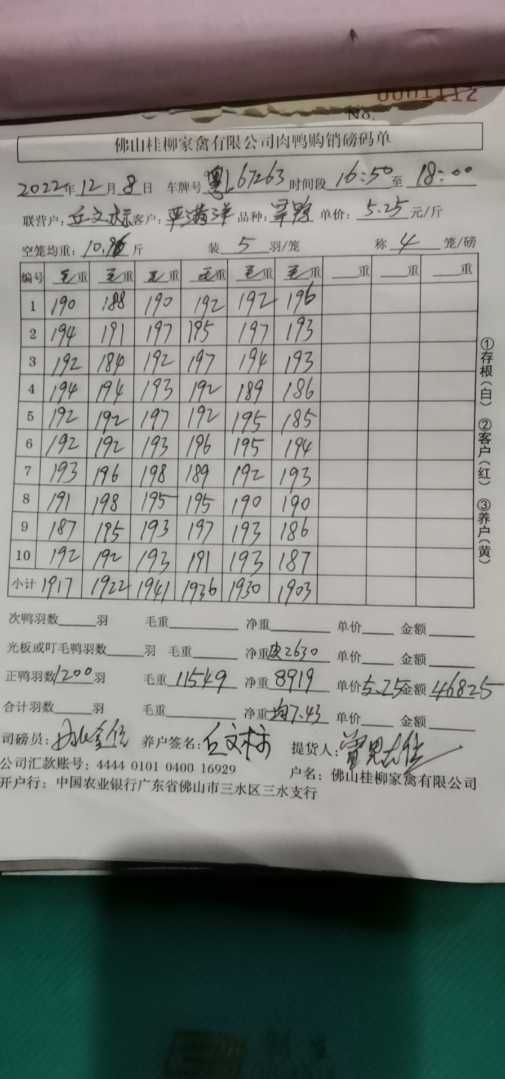 0001112
No.
佛山桂柳家禽有限公司肉鸭购销磅码单
2022年12月8日 车牌号 粤L67263 时间段 16:50 至 18:00
联营户: 丘文标 客户: 品种: 单价: 5.25 元/斤
空笼均重: 10.96 斤 装 5 羽/笼 称 4 笼/磅
编号 毛重 毛重 毛重 毛重 毛重 毛重 重 重 重
1 190 188 190 192 192 196
2 194 191 197 195 197 193
3 192 184 192 197 194 193
4 194 194 193 192 189 186
5 192 192 197 192 195 185
6 192 192 193 196 195 194
7 193 196 198 189 192 193
8 191 198 195 195 190 190
9 187 195 193 197 193 186
10 192 192 193 191 193 187
小计 1917 1922 1941 1936 1930 1903
次鸭羽数 羽 毛重 净重 单价 金额
光板或叮毛鸭羽数 羽 毛重 净重 皮2630 单价 金额
正鸭羽数 1200 羽 毛重 11549 净重 8919 单价 5.25 金额 46825
合计羽数 羽 毛重 净重 均7.43 单价 金额
司磅员: 养户签名: 丘文标 提货人:
公司汇款账号: 4444 0101 0400 16929 户名: 佛山桂柳家禽有限公司
开户行: 中国农业银行广东省佛山市三水区三水支行
①存根(白) ②客户(红) ③养户(黄)